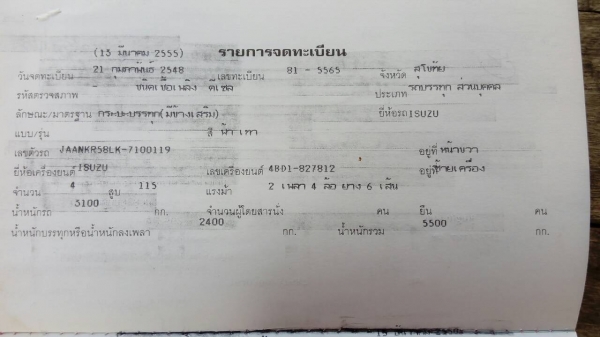 (13 มีนาคม 2555) รายการจดทะเบียน
วันจดทะเบียน 21 กุมภาพันธ์ 2548 เลขทะเบียน 81 - 5565 จังหวัด สุโขทัย
รหัสตรวจสภาพ ชนิดเชื้อเพลิง ดีเซล ประเภท รถบรรทุก ส่วนบุคคล
ลักษณะ/มาตรฐาน กระบะบรรทุก(มีข้างเสริม) ยี่ห้อรถ ISUZU
แบบ/รุ่น สี ฟ้า เทา
เลขตัวรถ JAANKR58LK-7100119 อยู่ที่ หน้าขวา
ยี่ห้อเครื่องยนต์ ISUZU เลขเครื่องยนต์ 4BD1-827812 อยู่ที่ ซ้ายเครื่อง
จำนวน 4 สูบ 115 แรงม้า 2 เพลา 4 ล้อ ยาง 6 เส้น
น้ำหนักรถ 3100 กก. จำนวนผู้โดยสารนั่ง คน ยืน คน
น้ำหนักบรรทุกหรือน้ำหนักลงเพลา 2400 กก. น้ำหนักรวม 5500 กก.